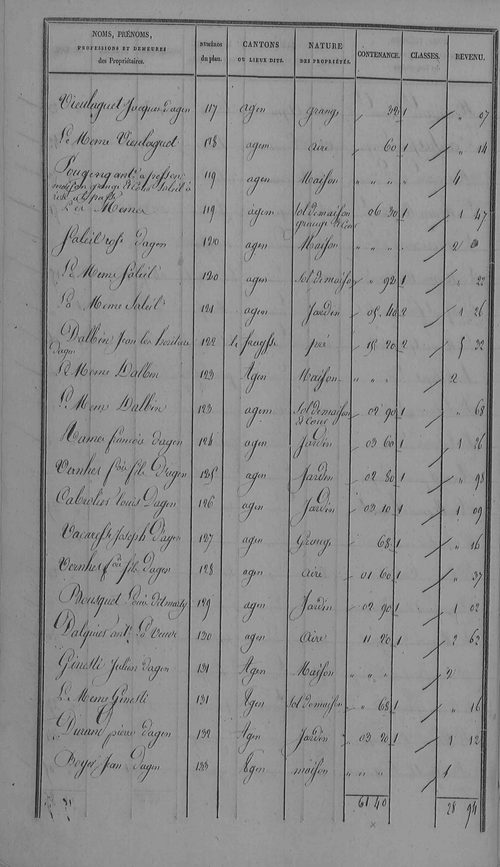 NOMS, PRÉNOMS, PROFESSIONS ET DEMEURES des Propriétaires. NUMÉROS du plan. CANTONS OU LIEUX DITS. NATURE DES PROPRIÉTÉS. CONTENANCE. CLASSES. REVENU.
Jacques d'agen 117 agen grange 32 1 " 07
Le Meme 118 agen aire 60 1 " 14
119 agen Maison " " " " 4
maison grange
Les Memes 119 agen Sol de maison grange et Cour 06 30 1 1 47
d'agen 120 agen Maison " " " 2
Le Meme 120 agen Sol de maison " 92 1 " 22
Le Meme 121 agen Jardin 05 40 2 1 26
Dalbin Jean les heritiers d'agen 122 pré 15 20 2 5 32
Le Meme Dalbin 123 Agen Maison " " " 2
Le Meme Dalbin 123 agen Sol de maison et Cour 02 90 1 " 68
francois d'agen 124 agen Jardin 03 60 1 1 26
Vernhes fils d'agen 125 agen Jardin 02 80 1 " 98
Cabrolier Louis d'agen 126 agen Jardin 03 10 1 1 09
Joseph d'agen 127 agen Grange 68 1 " 16
Vernhes fils d'agen 128 agen aire 01 60 1 " 37
Bousquet Louis dit marty 129 agen Jardin 02 90 1 1 02
Dalquier ant. La Veuve 130 agen aire 11 20 1 2 62
Ginesti Julien d'agen 131 Agen Maison " " " 2
Le Meme Ginesti 131 Agen Sol de maison " 68 1 " 16
Durand pierre d'agen 132 Agen Jardin 03 20 1 1 12
Boyer Jean d'agen 133 Agen maison " " " 1
61 40 28 94